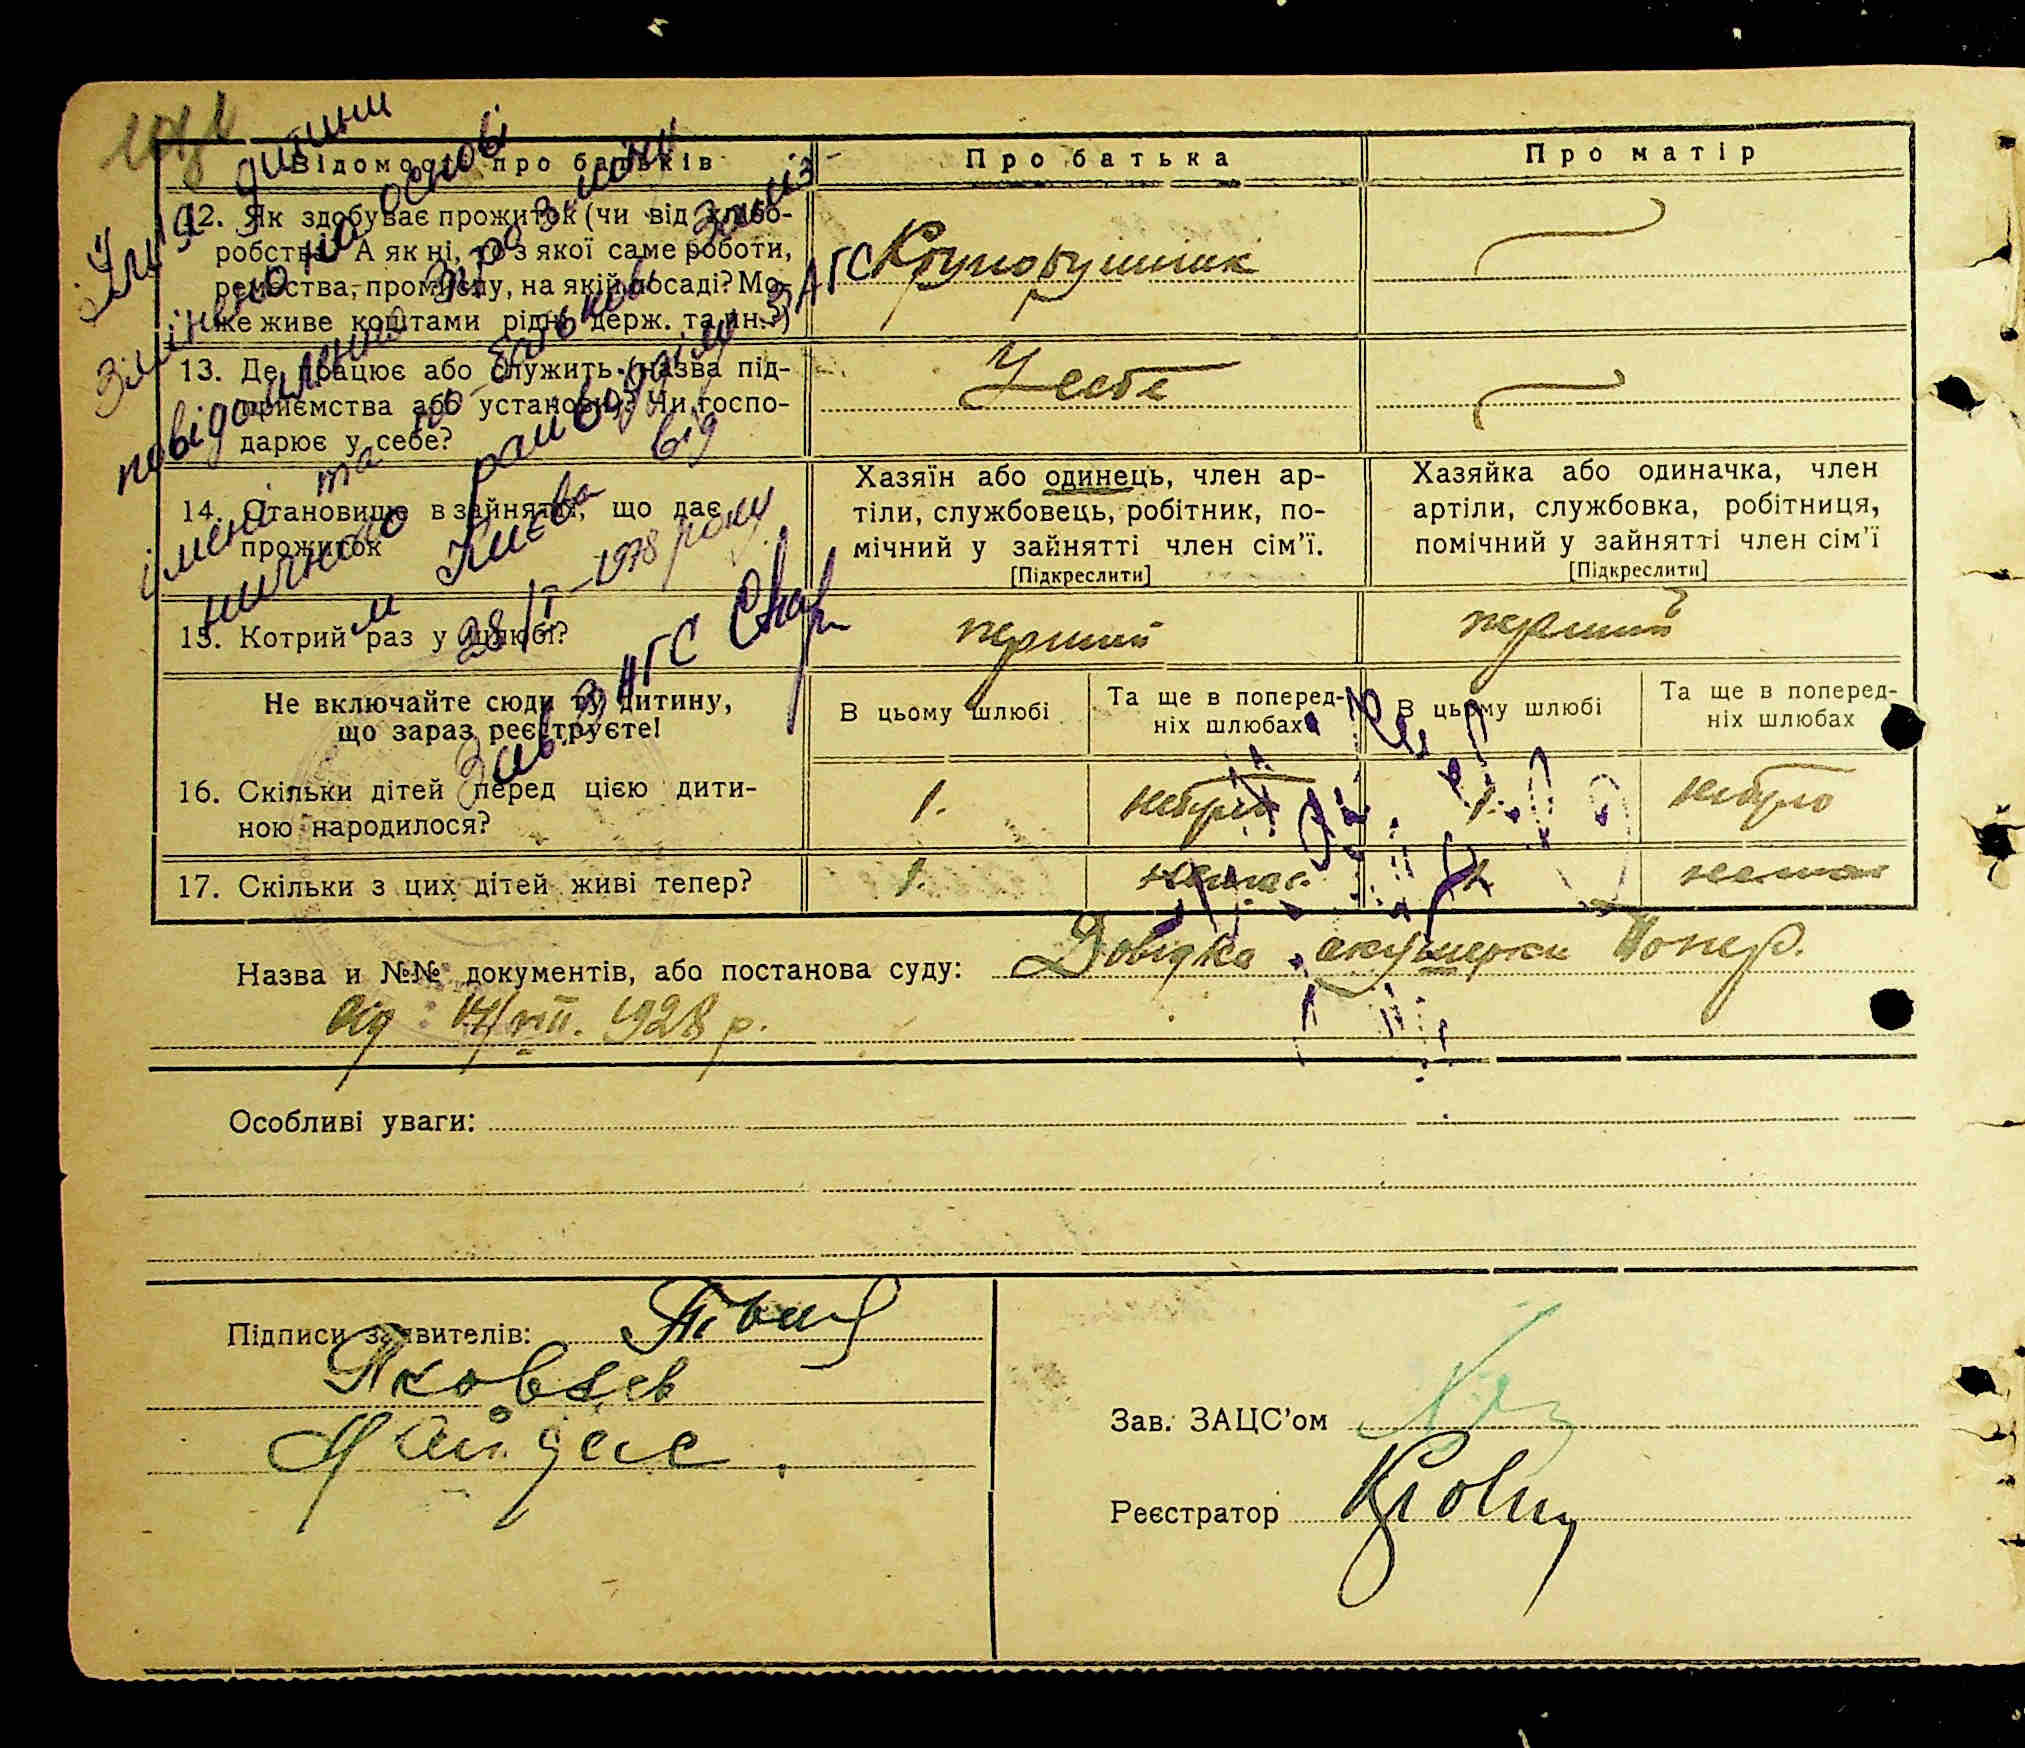 Відомості про батьків
Про батька
Про матір
12. Як здобуває прожиток (чи від хлібо-
робства? А як ні, то з якої саме роботи,
ремества, промислу, на якій посаді? Мо-
же живе коштами рідні, держ. та ин.?)
Крупорушник
13. Де працює або служить (назва під-
приємства або установи)? Чи госпо-
дарює у себе?
У себе
14. Становище в зайнятті, що дає
прожиток
Хазяїн або одинець, член ар-
тіли, службовець, робітник, по-
мічний у зайнятті член сім’ї.
[Підкреслити]
Хазяйка або одиначка, член
артіли, службовка, робітниця,
помічний у зайнятті член сім’ї
[Підкреслити]
15. Котрий раз у шлюбі?
перший
перший
Не включайте сюди ту дитину,
що зараз реєструєте!
В цьому шлюбі
Та ще в поперед-
ніх шлюбах
В цьому шлюбі
Та ще в поперед-
ніх шлюбах
16. Скільки дітей перед цією дити-
ною народилося?
1.
небуло
1.
небуло
17. Скільки з цих дітей живі тепер?
1.
немає
1
немає
Ім'я дитини
змінено на основі
повідомлення про зміну
імені та по-батькові Заліз
ничного райвідділу ЗАГС
м Києва від
28/І–1978 року
Зав. ЗАГС
Назва и №№ документів, або постанова суду: Довідка акушерки
від 17/VIII. 1928 р.
Особливі уваги:
Підписи заявителів:
Яковлев
Зав. ЗАЦС’ом
Реєстратор